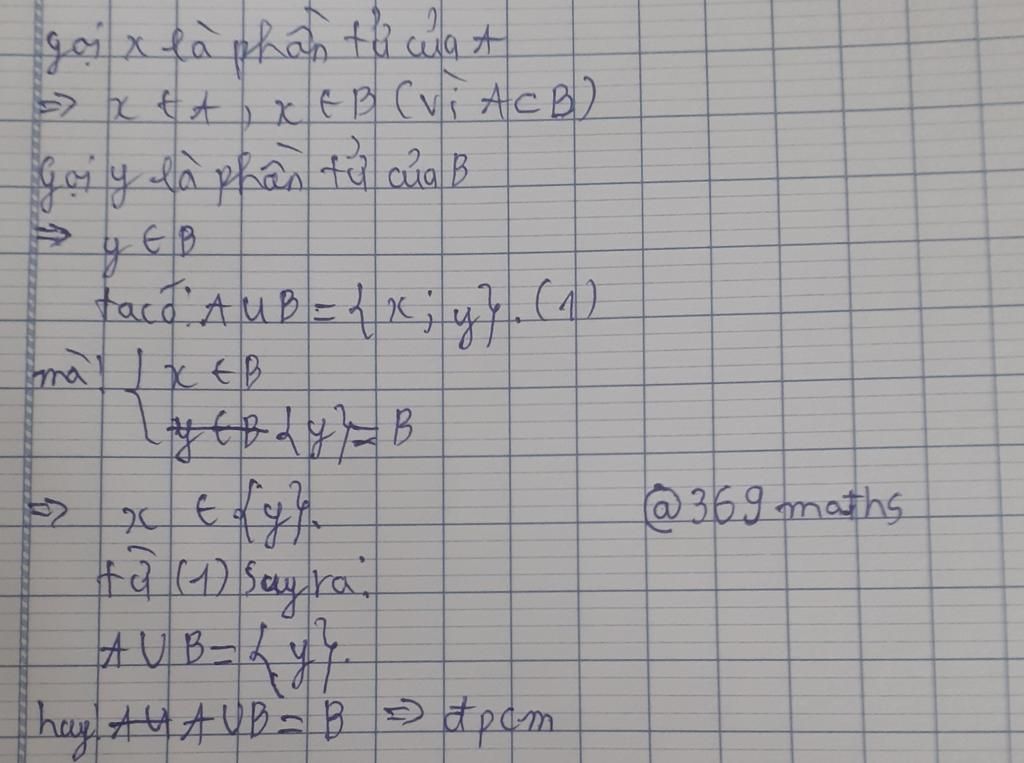 gọi x là phần tử của A
=> x ∈ A, x ∈ B (vì A ⊂ B)
Gọi y là phần tử của B
=> y ∈ B
ta có: A ∪ B = { x; y }. (1)
mà { x ∈ B
y ∈ B {y} = B
=> x ∈ {y}.
@369 maths
từ (1) suy ra:
A ∪ B = { y }.
hay A ∪ A ∪ B = B => đpcm